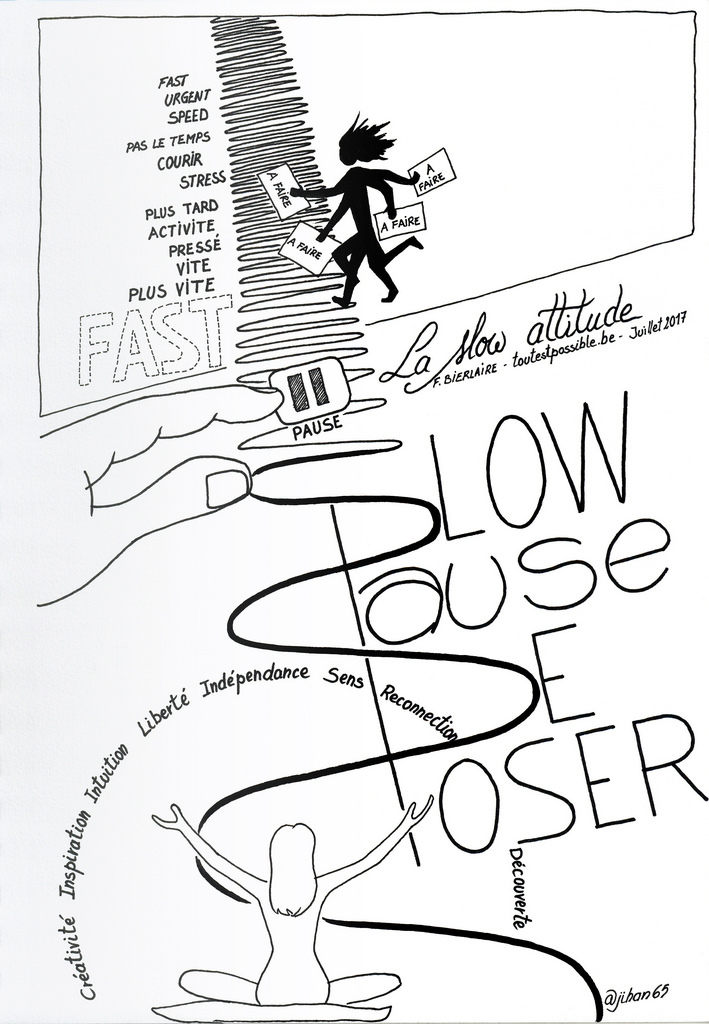 FAST
URGENT
SPEED
PAS LE TEMPS
COURIR
STRESS
PLUS TARD
ACTIVITE
PRESSÉ
VITE
PLUS VITE
FAST
A FAIRE
A FAIRE
A FAIRE
A FAIRE
La slow attitude
F. BIERLAIRE - toutestpossible.be - Juillet 2017
PAUSE
SLOW
Pause
SE
POSER
Créativité Inspiration Intuition Liberté Indépendance Sens Reconnection
Découverte
@jihan65